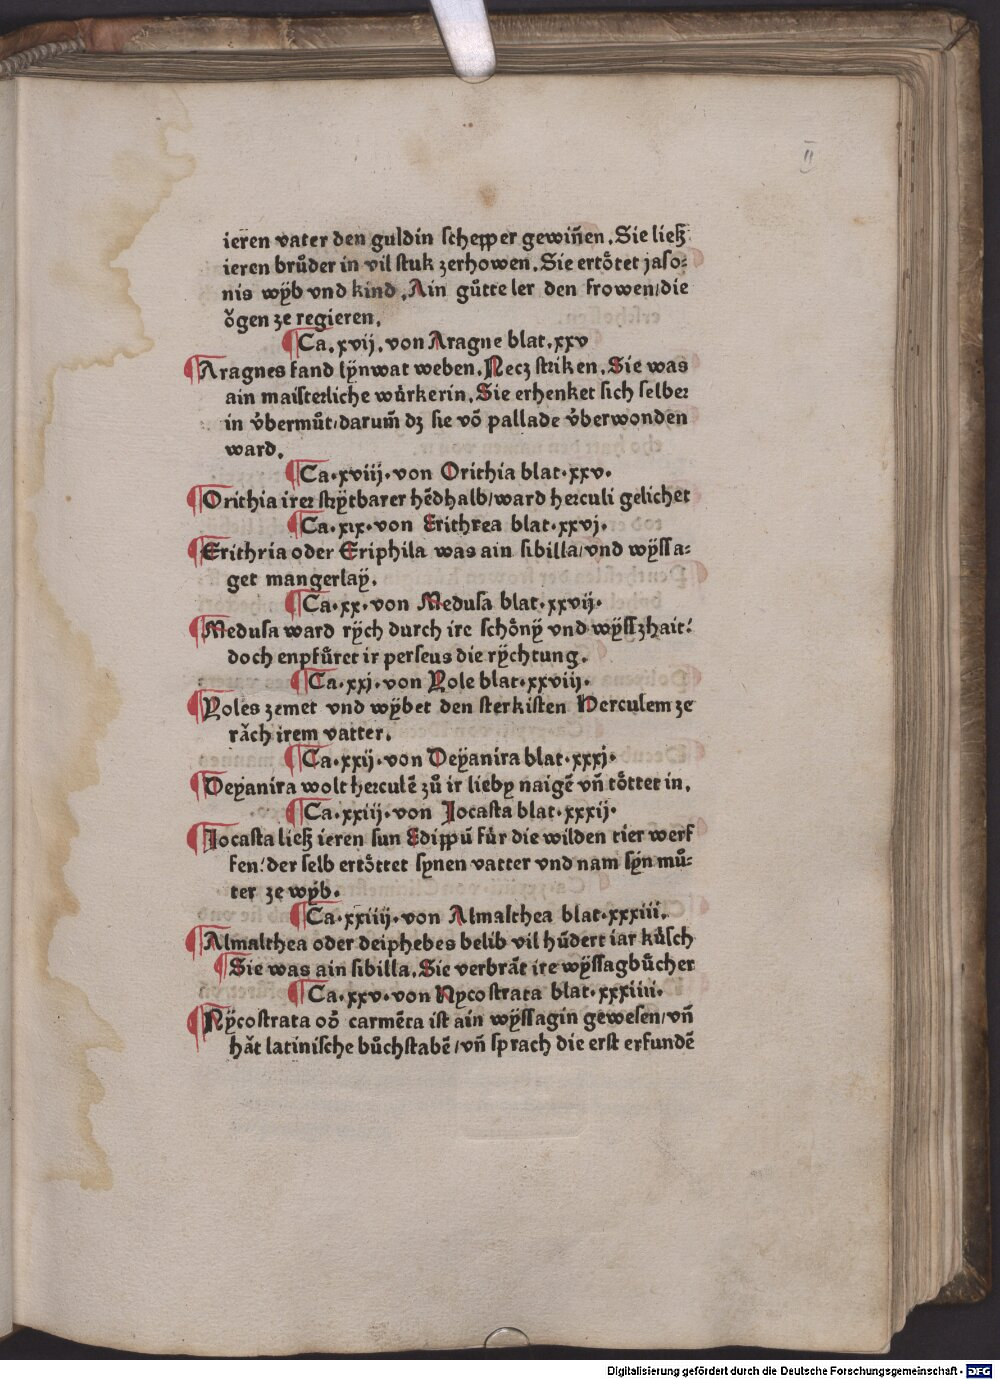 II
ieren vater den guldin schepper gewiñen. Sie ließ
ieren brůder in vil stuk zerhowen. Sie ertőtet jaso⸗
nis wÿb vnd kind. Ain gůtte ler den frowen/die
ögen ze regieren.
¶Ca. xvij. von Aragne blat. xxv
¶Aragnes fand lÿnwat weben. Necz striken. Sie was
ain maisterliche wůrkerin. Sie erhenket sich selber
in v̊bermůt/darum̃ dz sie võ pallade v̊berwonden
ward.
¶Ca. xviij. von Orithia blat. xxv.
¶Orithia irer strÿtbarer hẽdhalb/ward herculi gelichet
¶Ca. xix. von Erithrea blat. xxvj.
¶Erithria oder Eriphila was ain sibilla/vnd wÿssa⸗
get mangerlaÿ.
¶Ca. xx. von Medusa blat. xxvij.
¶Medusa ward rÿch durch ire schőnÿ vnd wÿsszhait:
doch enpfůret ir perseus die rÿchtung.
¶Ca. xxj. von Yole blat. xxviij.
¶Yoles zemet vnd wÿbet den sterkisten Herculem ze
råch irem vatter.
¶Ca. xxij. von Deÿanira blat. xxxj.
¶Deyanira wolt herculẽ zů ir lieby naigẽ vñ tőttet in.
¶Ca. xxiij. von Jocasta blat. xxxij.
¶Jocasta ließ ieren sun Edippũ fůr die wilden tier werf
fen: der selb ertőttet synen vatter vnd nam sÿn mů⸗
ter ze wÿb.
¶Ca. xxiiij. von Almalthea blat. xxxiii.
¶Almalthea oder deiphebes belib vil hũdert iar kůsch
¶Sie was ain sibilla. Sie verbrãt ire wÿssagbůcher
¶Ca. xxv. von Nycostrata blat. xxxiiii.
¶Nÿcostrata od̃ carmẽta ist ain wÿssagin gewesen/vñ
håt latinische bůchstabẽ/vñ sprach die erst erfundẽ
Digitalisierung gefördert durch die Deutsche Forschungsgemeinschaft - DFG